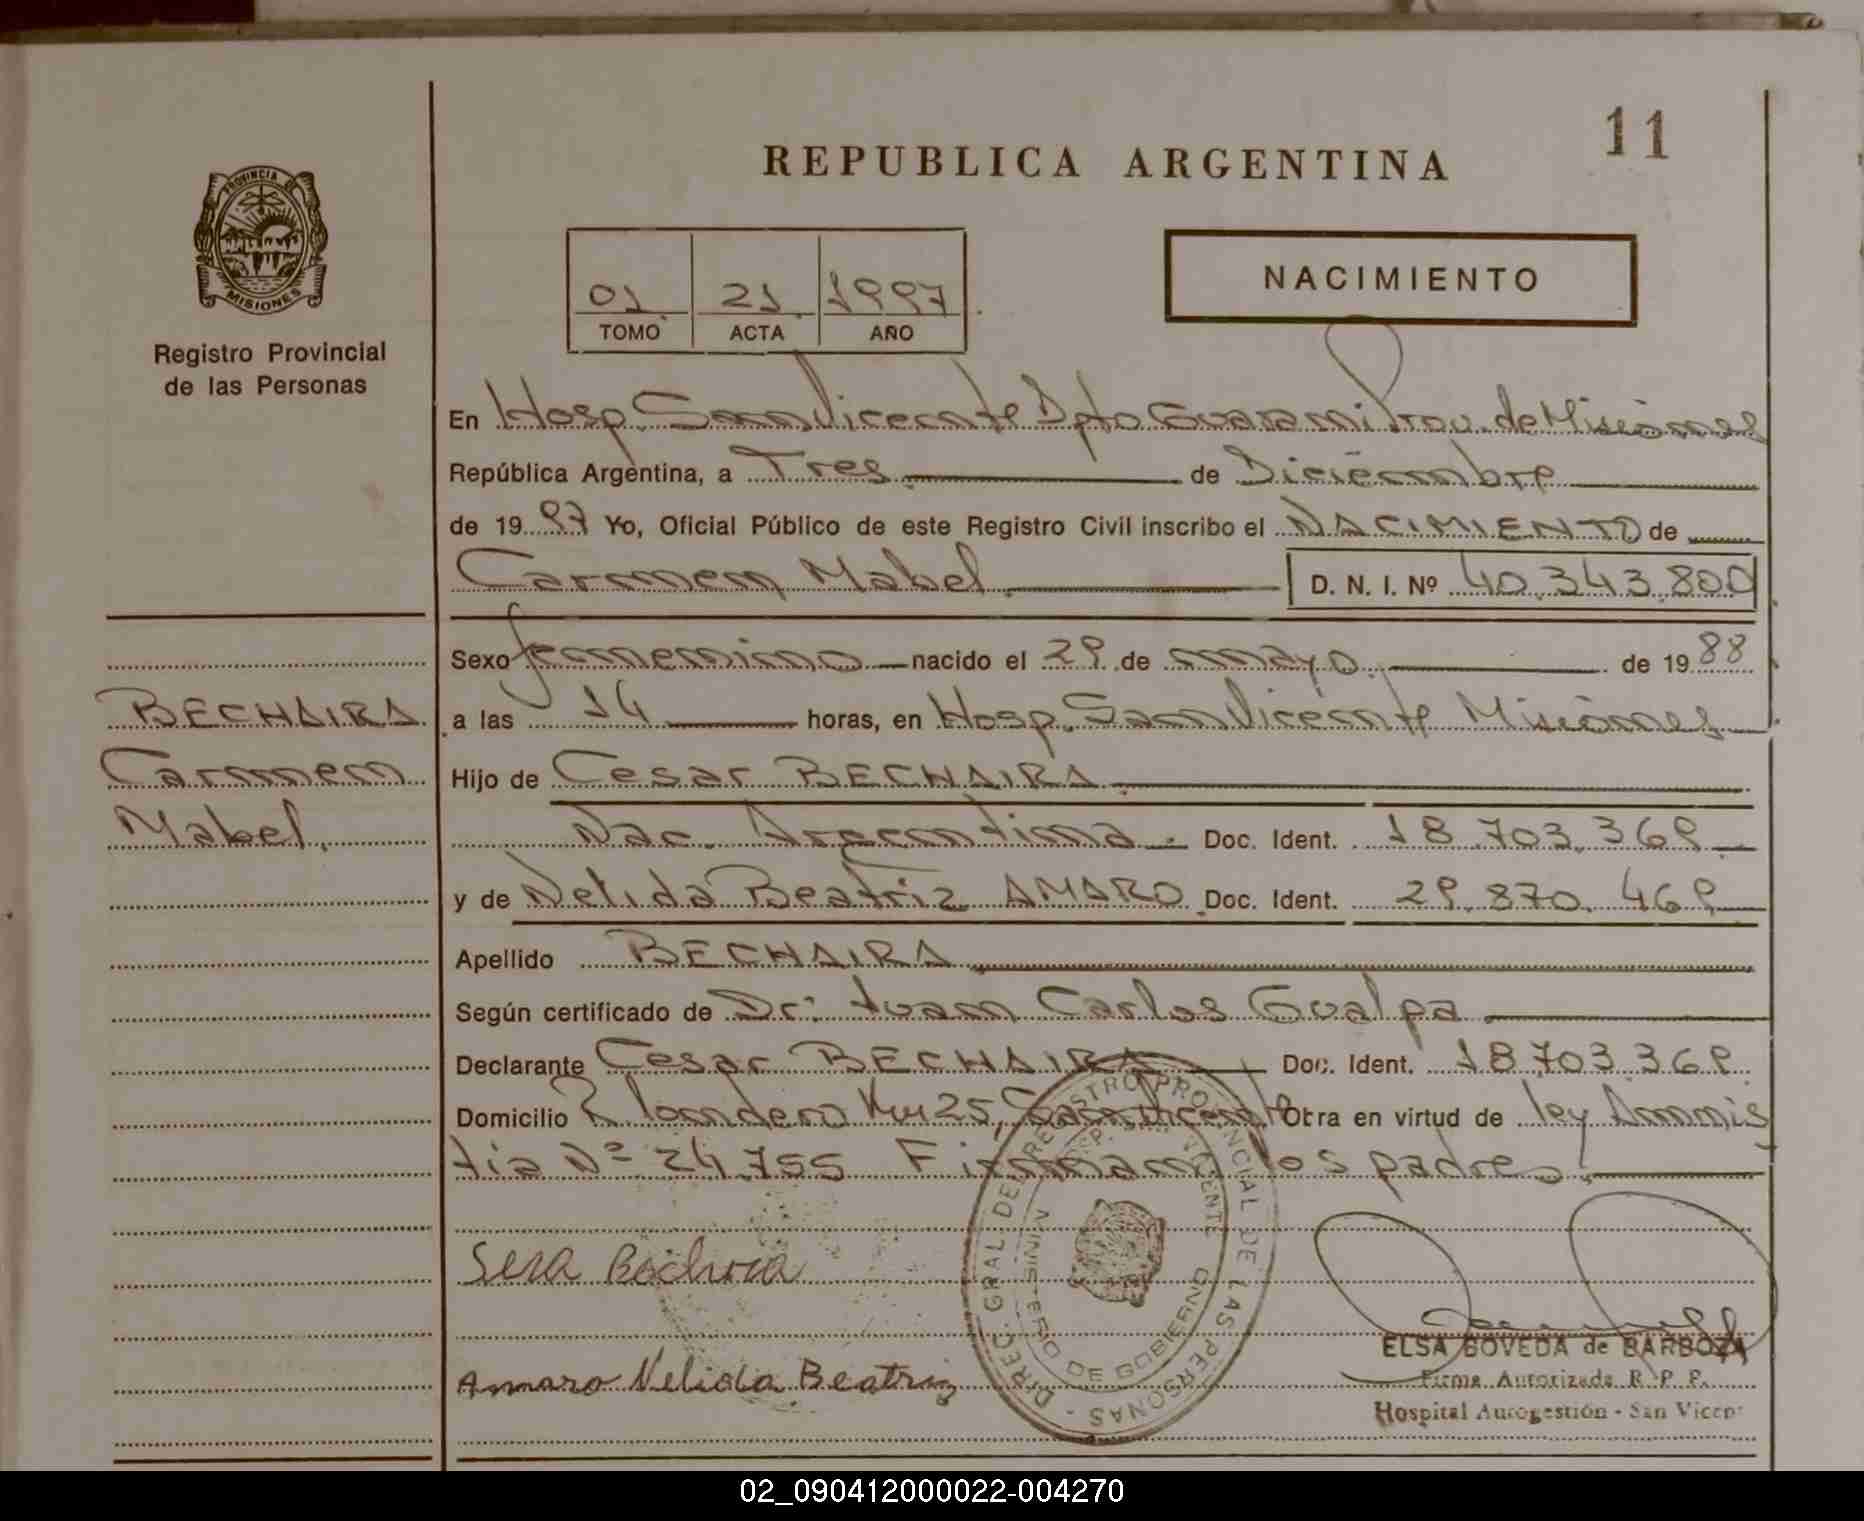 11
REPUBLICA ARGENTINA
PROVINCIA DE MISIONES
Registro Provincial
de las Personas
01 21 1997
TOMO ACTA AÑO
NACIMIENTO
En Hosp. San Vicente Dpto Guarani Prov. de Misiones
República Argentina, a Tres de Diciembre
de 1997 Yo, Oficial Público de este Registro Civil inscribo el NACIMIENTO de
Carmen Mabel D. N. I. Nº 40.343.800
Sexo femenino nacido el 29 de mayo de 1988
a las 14 horas, en Hosp. San Vicente Misiones
Hijo de Cesar BECHAIRA
Nac. Argentina Doc. Ident. 18.703.369
y de Nelida Beatriz AMARO Doc. Ident. 29.870.469
Apellido BECHAIRA
Según certificado de Dr: Juan Carlos Gualpa
Declarante Cesar BECHAIRA Doc. Ident. 18.703.369
Domicilio R. londero Km 25, San Vicente Otra en virtud de ley Amnis
tia Nº 24.755 Firman los padres.
BECHAIRA
Carmen
Mabel.
Amaro Nelida Beatriz
DIREC. GRAL. DEL REGISTRO PROVINCIAL DE LAS PERSONAS -
MINISTERIO DE GOBIERNO
ELSA BOVEDA de BARBOZA
Firma Autorizada R. P. P.
Hospital Autogestión - San Vicent
02_090412000022-004270